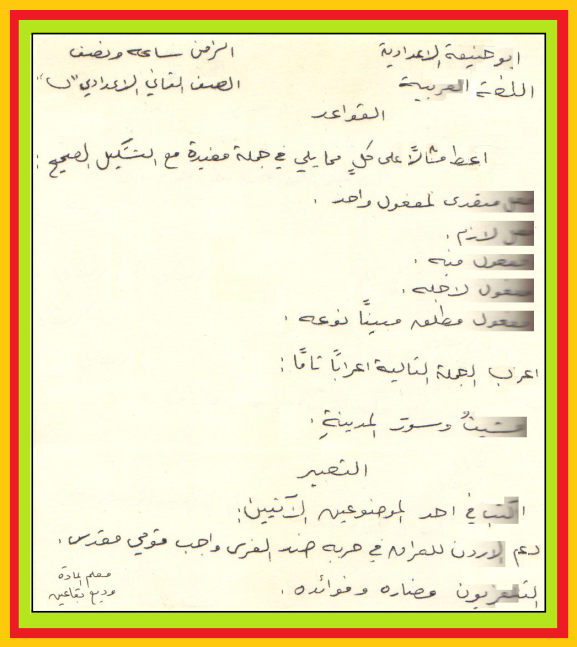 ابو حنيفة الاعدادية
الزمن ساعة ونصف
اللغة العربية
الصف الثاني الاعدادي "ب"
القواعد
اعط مثالاً على كلٍ مما يلي في جملة مفيدة مع التشكيل الصحيح :
فعل متعدى لمفعول واحد .
فعل لازم .
مفعول فيه .
مفعول لاجله .
مفعول مطلق مبيناً نوعه .
اعرب الجملة التالية اعراباً تامًا :
مشيتُ وسورَ المدينةِ .
التعبير
اكتب في احد الموضوعين الآتيين :
دعم الاردن للعراق في حربه ضد الفرس واجب قومي مقدس .
التلفزيون مضاره وفوائده .
معلم المادة
وديع